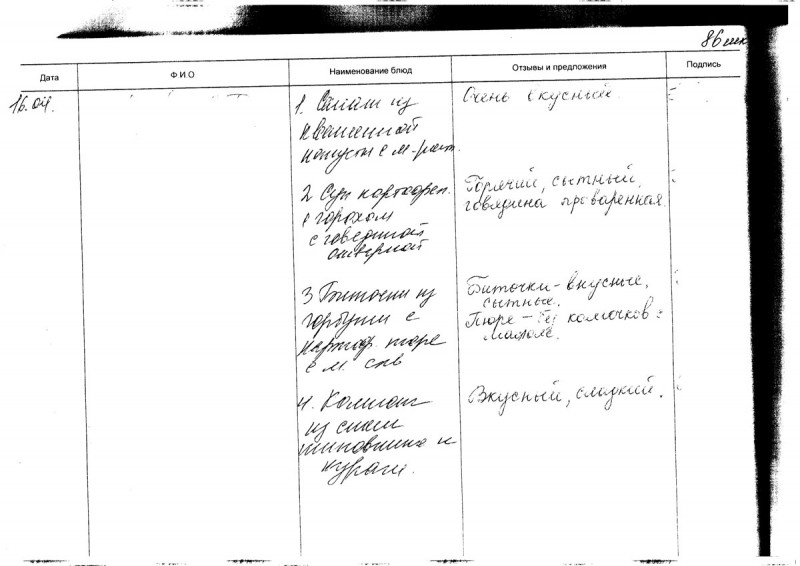 86 шк
Дата Ф.И.О Наименование блюд Отзывы и предложения Подпись
16.04. 1. Салат из Очень вкусный.
квашенной
капусты с м. раст.
2 Суп картофел. Горячий, сытный,
с горохом говядина проваренная.
с говядиной
отварной
3 Биточки из Биточки - вкусные,
сытные.
горбуши с Пюре - без комочков с
картоф. пюре маслом.
с м. слив
4. Компот Вкусный, сладкий.
из смеси
шиповника и
кураги.